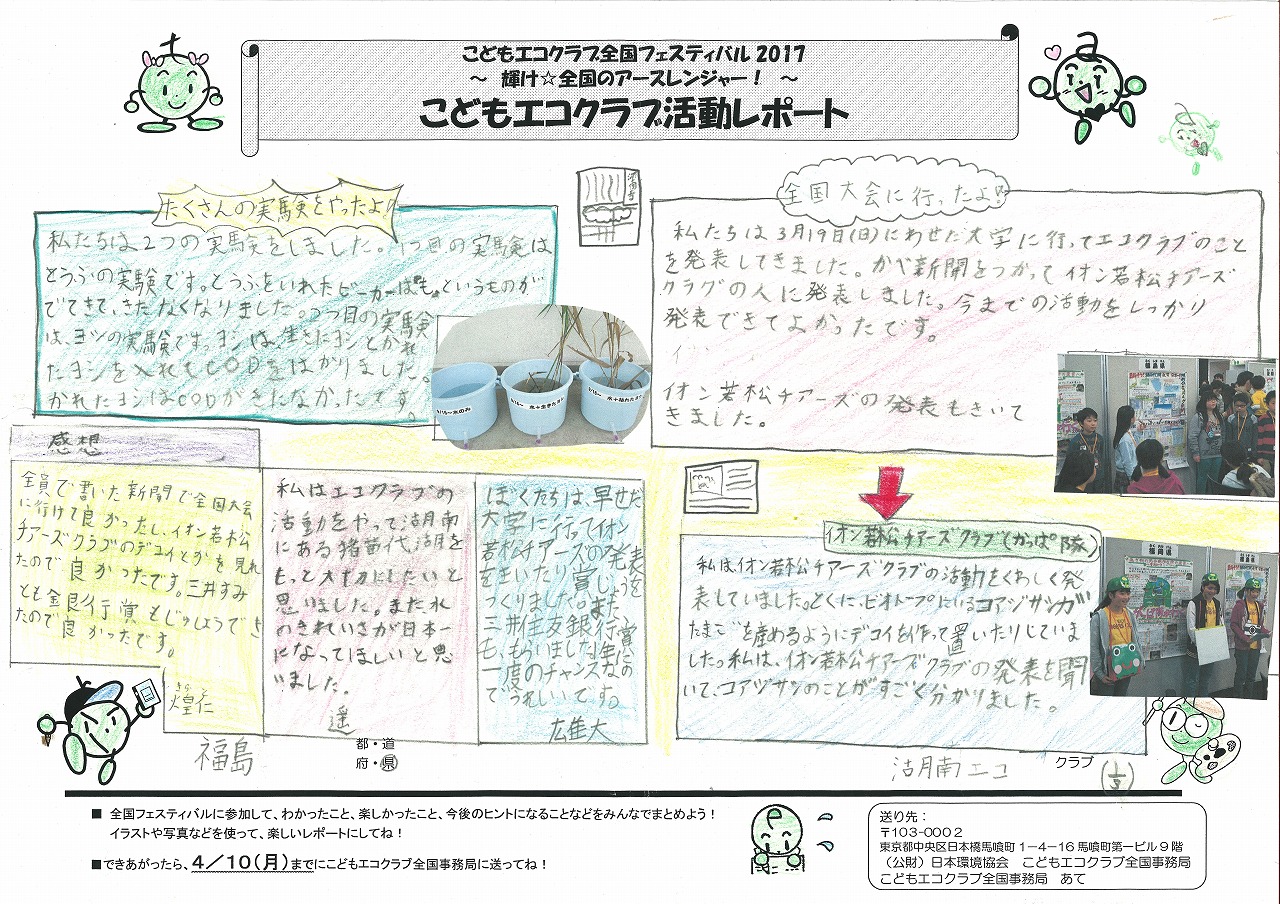 こどもエコクラブ全国フェスティバル 2017
～ 輝け☆全国のアースレンジャー！ ～
こどもエコクラブ活動レポート
たくさんの実験をやったよ!!
私たちは2つの実験をしました。1つ目の実験は
とうふの実験です。とうふをいれたビーカーは"も"というものが
でてきて、きたなくなりました。2つ目の実験
は、ヨシの実験です。ヨシは、生きたヨシとかれ
たヨシを入れてCODをはかりました。
かれたヨシはCODがきたなかったです。
9/15～ 水のみ
9/15～ 水+生きたヨシ
9/15～ 水+枯れたヨシ
全国大会に行ったよ!!
私たちは3月19日(日)にわせだ大学に行ってエコクラブのこと
を発表してきました。かべ新聞をつかってイオン若松チアーズ
クラブの人に発表しました。今までの活動をしっかり
発表できてよかったです。
イオン若松チアーズの発表もきいて
きました。
福島県
感想
全員で書いた新聞で全国大会
に行けて良かったし、イオン若松
チアーズクラブのデコイとかを見れ
たので良かったです。三井すみ
とも銀行賞もじゅしょうでき
たので良かったです。
きのと
煌仁
私はエコクラブの
活動をやって湖南
にある猪苗代湖を
もっと大切にしたいと
思いました。また水
のきれいさが日本一
になってほしいと思
いました。
遥
ぼくたちは、早せだ
大学に行ってイオン
若松チアーズの発表
をきいたり賞じょうを
つくりました。また、
三井住友銀行賞
も、もらいました。1年に
一度のチャンスなの
でうれしいです。
広隹大
イオン若松チアーズクラブ(かっぱ隊)
私は、イオン若松チアーズクラブの活動をくわしく発
表していました。とくに、ビオトープにいるコアジサシが
たまごを産めるようにデコイを作って置いたりしていま
した。私は、イオン若松チアーズクラブの発表を聞
いて、コアジサシのことがすごく分かりました。
福岡県
福島県
福島
都・道
府・県
湖南エコ
クラブ
1/3
■ 全国フェスティバルに参加して、わかったこと、楽しかったこと、今後のヒントになることなどをみんなでまとめよう！
イラストや写真などを使って、楽しいレポートにしてね！
■できあがったら、4／10（月）までにこどもエコクラブ全国事務局に送ってね！
送り先：
〒103-0002
東京都中央区日本橋馬喰町1－4－16 馬喰町第一ビル9階
（公財）日本環境協会 こどもエコクラブ全国事務局
こどもエコクラブ全国事務局 あて